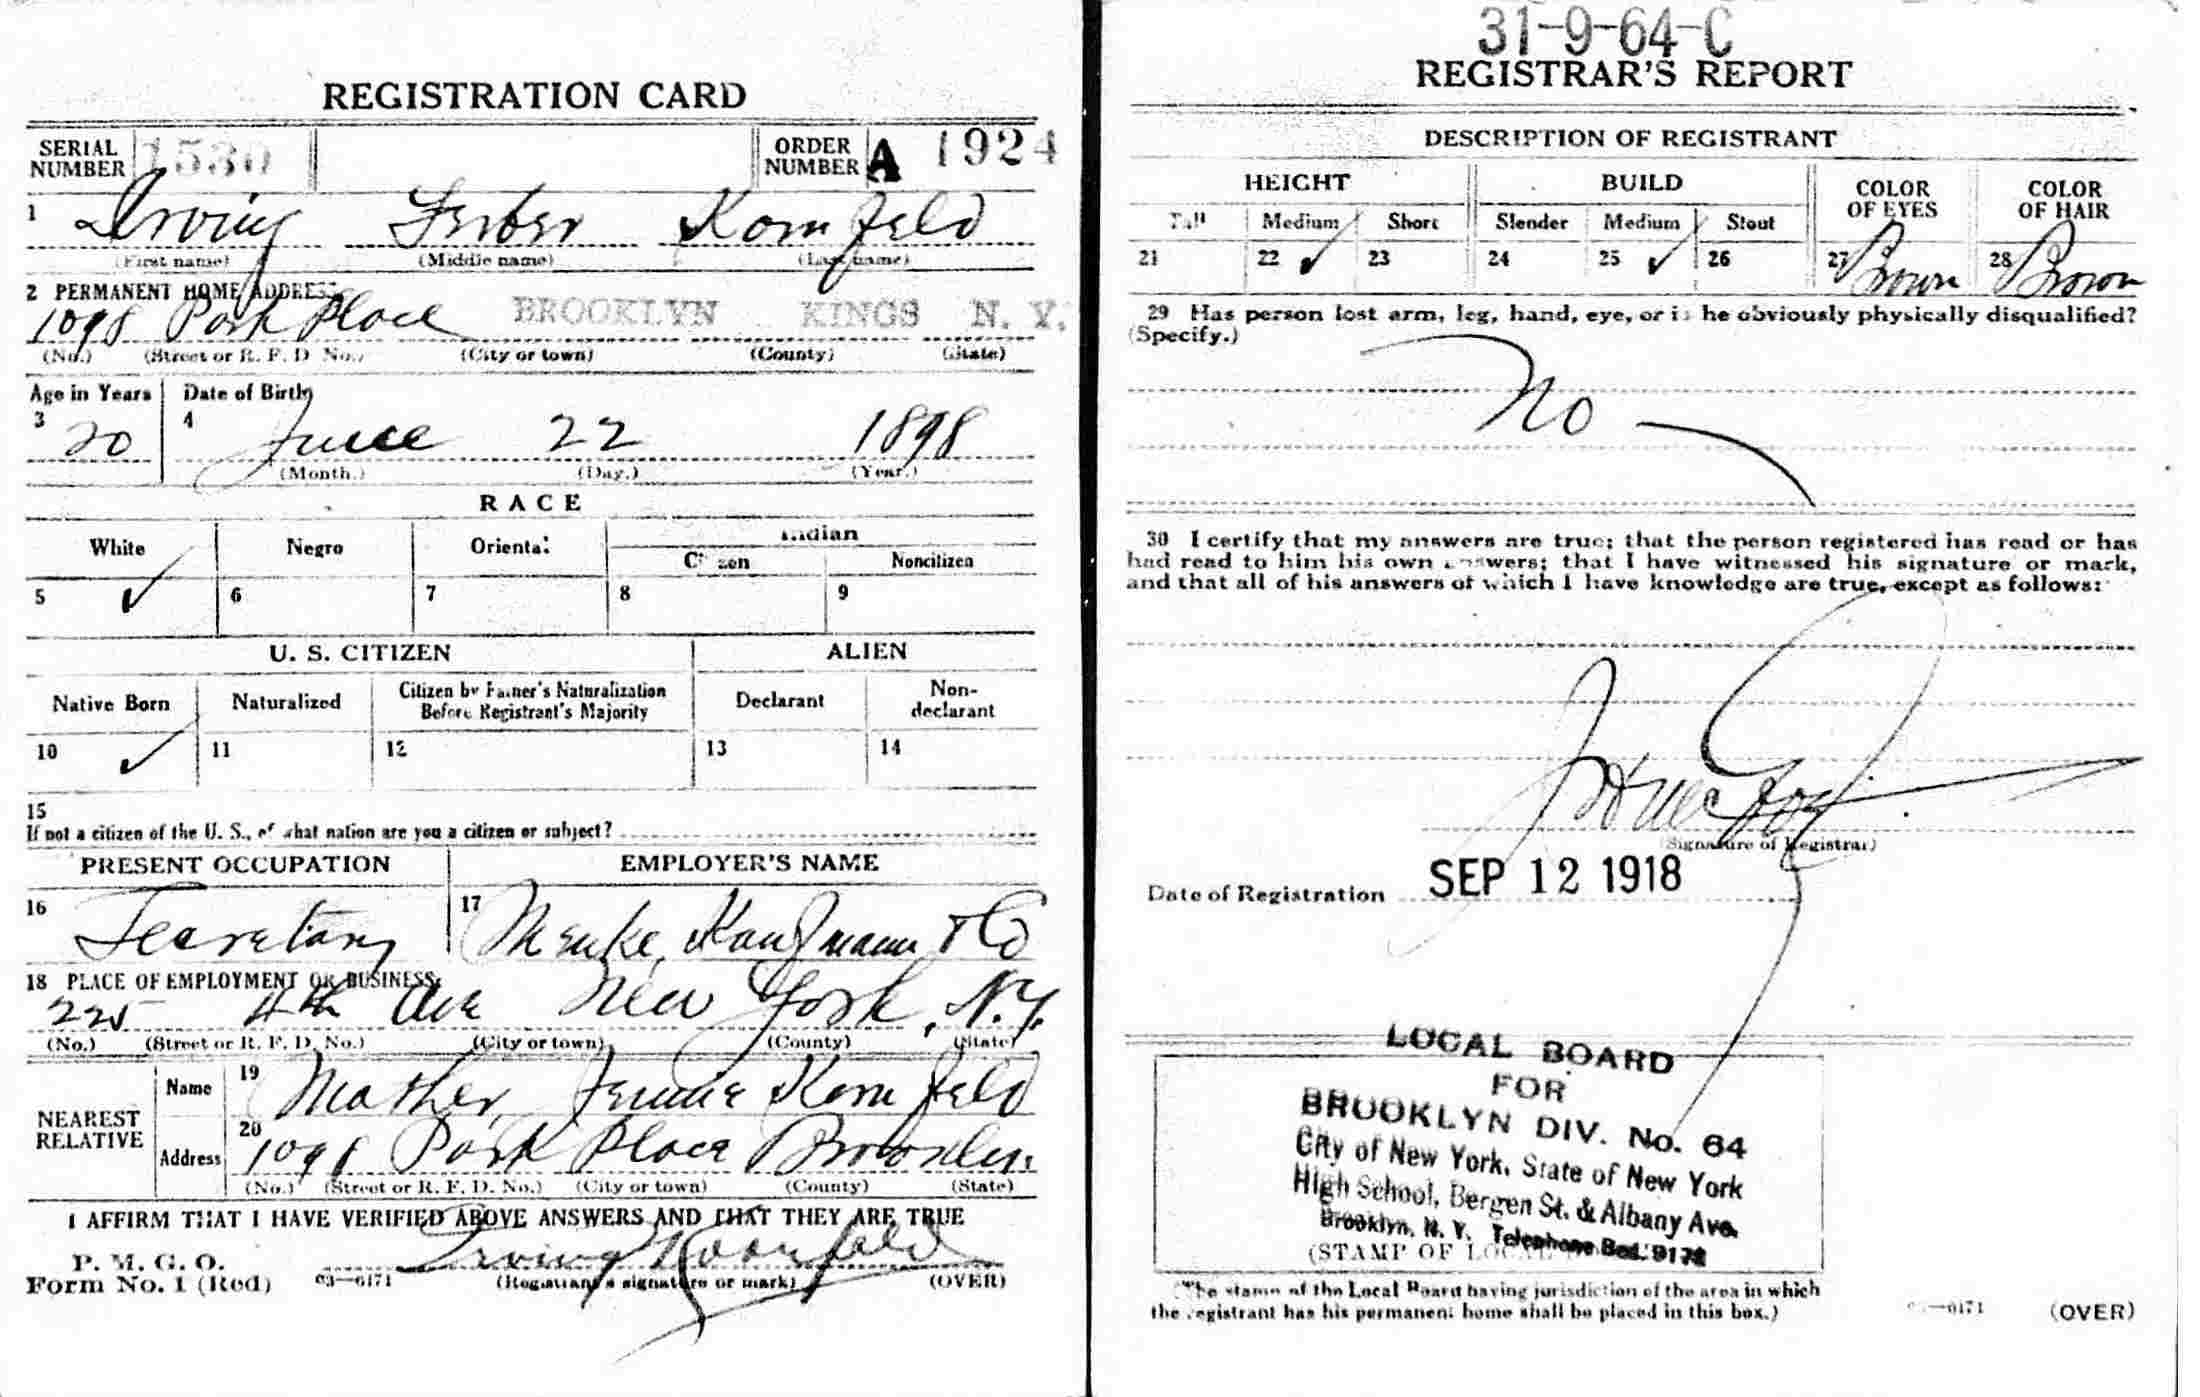 REGISTRATION CARD
SERIAL NUMBER 1530 ORDER NUMBER A 1924
1 Irving Ferber Kornfeld
(First name) (Middle name) (Last name)
2 PERMANENT HOME ADDRESS:
1098 Park Place BROOKLYN KINGS N. Y.
(No.) (Street or R. F. D. No.) (City or town) (County) (State)
Age in Years Date of Birth
3 20 4 June 22 1898
(Month.) (Day.) (Year.)
RACE
White Negro Oriental Indian
Citizen Noncitizen
5 ✓ 6 7 8 9
U. S. CITIZEN ALIEN
Native Born Naturalized Citizen by Father's Naturalization Before Registrant's Majority Declarant Non-declarant
10 ✓ 11 12 13 14
15
If not a citizen of the U. S., of what nation are you a citizen or subject?
PRESENT OCCUPATION EMPLOYER'S NAME
16 Secretary 17 Menke, Kaufmann & Co
18 PLACE OF EMPLOYMENT OR BUSINESS:
225 4th Ave New York, N.Y.
(No.) (Street or R. F. D. No.) (City or town) (County) (State)
NEAREST RELATIVE
Name 19 Mother, Jennie Kornfeld
Address 20 1098 Park Place Brooklyn.
(No.) (Street or R. F. D. No.) (City or town) (County) (State)
I AFFIRM THAT I HAVE VERIFIED ABOVE ANSWERS AND THAT THEY ARE TRUE
P. M. G. O.
Form No. 1 (Red) 03—6171 Irving Kornfeld
(Registrant's signature or mark) (OVER)
31-9-64-C
REGISTRAR'S REPORT
DESCRIPTION OF REGISTRANT
HEIGHT BUILD COLOR OF EYES COLOR OF HAIR
Tall Medium Short Slender Medium Stout
21 22 ✓ 23 24 25 ✓ 26 27 Brown 28 Brown
29 Has person lost arm, leg, hand, eye, or is he obviously physically disqualified?
(Specify.)
No
30 I certify that my answers are true; that the person registered has read or has
had read to him his own answers; that I have witnessed his signature or mark,
and that all of his answers of which I have knowledge are true, except as follows:
(Signature of Registrar)
Date of Registration SEP 12 1918
LOCAL BOARD
FOR
BROOKLYN DIV. No. 64
City of New York, State of New York
High School, Bergen St. & Albany Ave.
Brooklyn, N. Y. Telephone Bed. 9172
(STAMP OF LOCAL
(The stamp of the Local Board having jurisdiction of the area in which
the registrant has his permanent home shall be placed in this box.)
03—6171 (OVER)